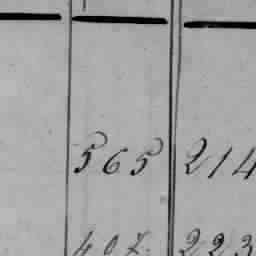 565 214
407. 223